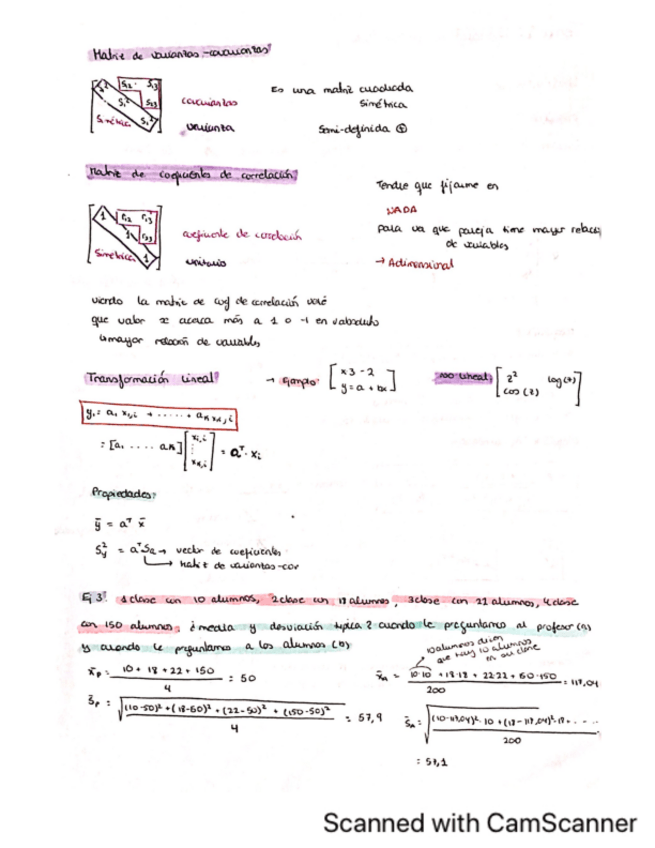 Matriz de varianzas-covarianzas
S₁² S₁₂ S₁₃
S₂² S₂₃
Simétrica S₃²
covarianzas
varianza
Es una matriz cuadrada
Simétrica
Semi-definida ⊕
Matriz de coeficientes de correlación
1 r₁₂ r₁₃
1 r₂₃
Simétrica 1
coeficiente de correlación
unitario
Tendré que fijarme en
NADA
para ver que pareja tiene mayor relación
de variables
→ Adimensional
viendo la matriz de coef de correlación veré
que valor se acerca más a 1 o -1 en valor absoluto
mayor relación de variables
Transformación lineal
→ ejemplo: [x3-2
y=a+bx]
no lineal [z² log(z)
cos(z)]
yᵢ = a₁ x₁,ᵢ + ...... + aₖ xₖ,ᵢ
= [a₁ .... aₖ] [x₁,ᵢ ⋮ xₖ,ᵢ] = aᵀ · xᵢ
Propiedades:
ȳ = aᵀ x̄
S²y = aᵀSa → vector de coeficientes
→ matriz de varianzas-cov
Ej 3: 1 clase con 10 alumnos, 2 clase con 18 alumnos, 3 clase con 22 alumnos, 4 clase
con 150 alumnos ¿media y desviación típica? cuando le preguntamos al profesor (a)
y cuando le preguntamos a los alumnos (b)
10 alumnos dicen
que hay 10 alumnos
en su clase
x̄p = (10 + 18 + 22 + 150) / 4 = 50
x̄a = (10·10 + 18·18 + 22·22 + 150·150) / 200 = 117,04
S̄p = √((10-50)² + (18-50)² + (22-50)² + (150-50)²) / 4 = 57,9
S̄a = √((10-117,04)²·10 + (18-117,04)²·18 + ... / 200
= 57,1
Scanned with CamScanner